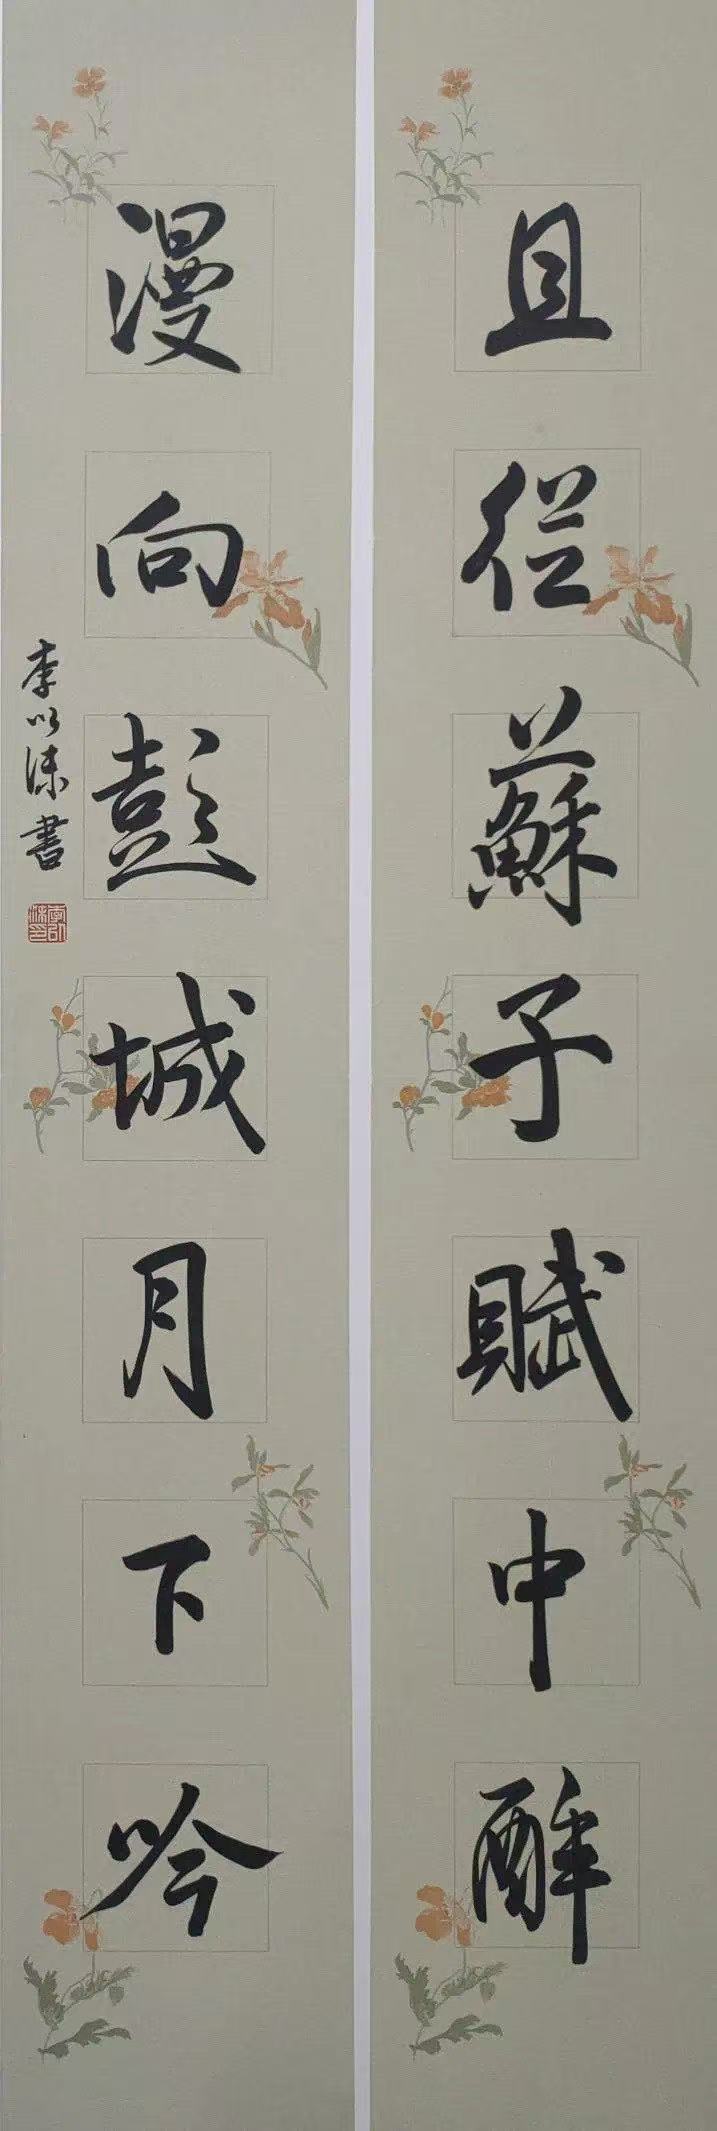 且從蘇子賦中醉
漫向彭城月下吟
李以沫書